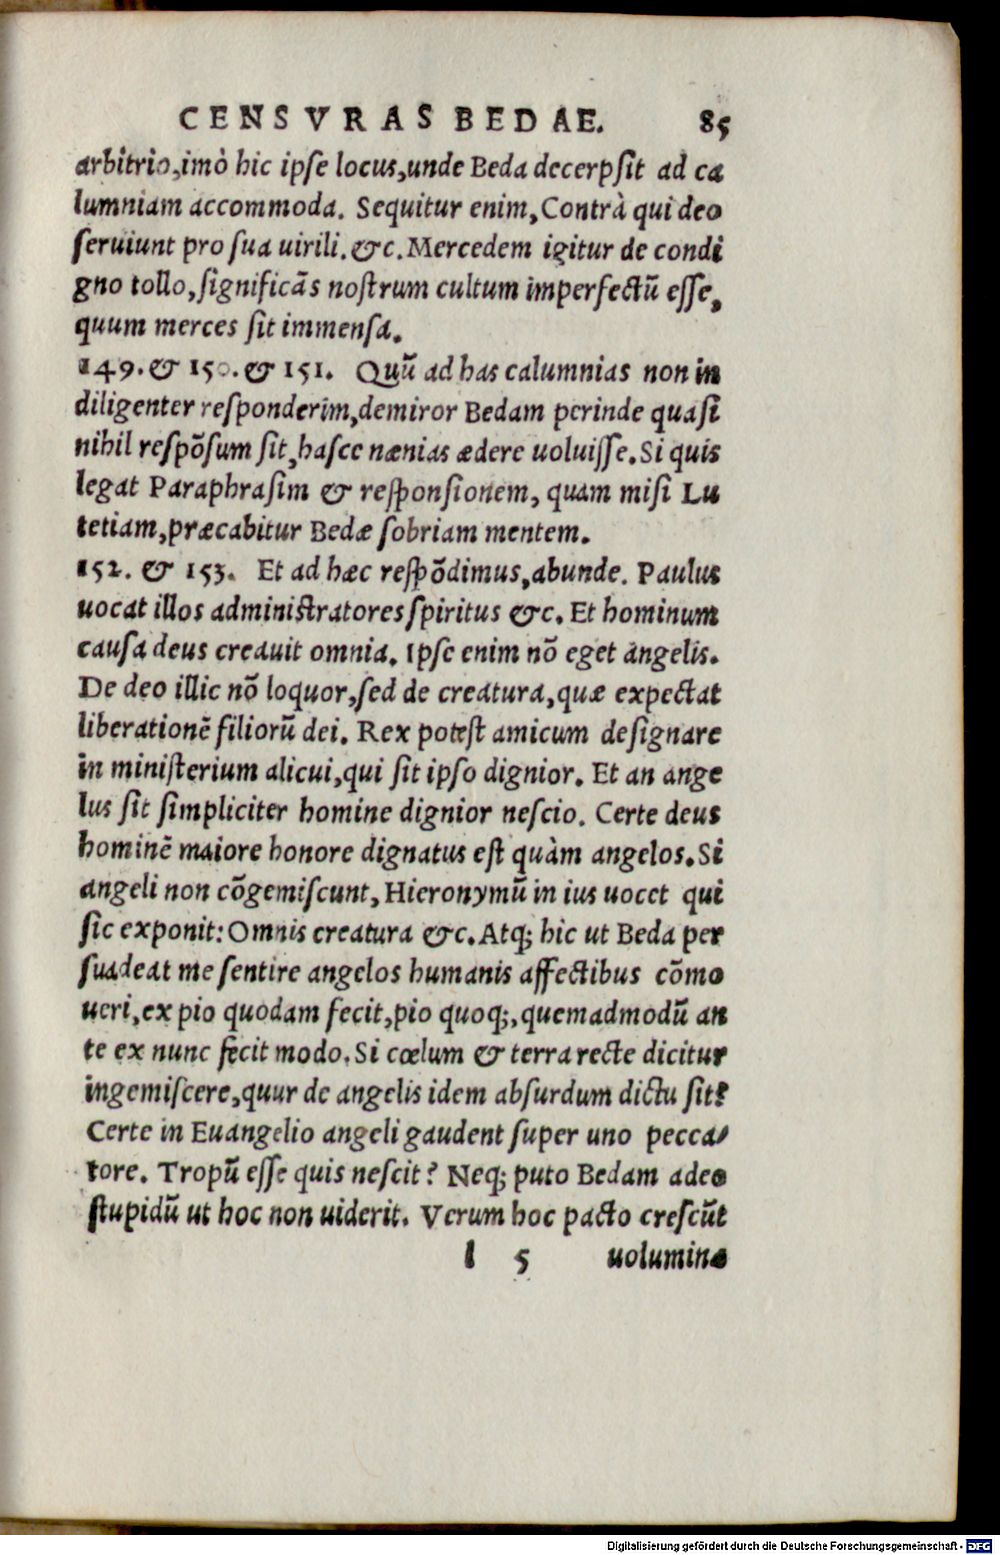 CENSVRAS BEDAE. 85
arbitrio,imò hic ipse locus,unde Beda decerpsit ad ca
lumniam accommoda. Sequitur enim,Contrà qui deo
seruiunt pro sua uirili.&c.Mercedem igitur de condi
gno tollo,significãs nostrum cultum imperfectũ esse,
quum merces sit immensa.
149.& 150.& 151. Quũ ad has calumnias non in
diligenter responderim,demiror Bedam perinde quasi
nihil respõsum sit,hasce nænias ædere uoluisse.Si quis
legat Paraphrasim & responsionem, quam misi Lu
tetiam,præcabitur Bedæ sobriam mentem.
152. & 153. Et ad hæc respõdimus,abunde. Paulus
uocat illos administratores spiritus &c. Et hominum
causa deus creauit omnia. Ipse enim nõ eget angelis.
De deo illic nõ loquor,sed de creatura,quæ expectat
liberationẽ filiorũ dei. Rex potest amicum designare
in ministerium alicui,qui sit ipso dignior. Et an ange
lus sit simpliciter homine dignior nescio. Certe deus
hominẽ maiore honore dignatus est quàm angelos.Si
angeli non cõgemiscunt,Hieronymũ in ius uocet qui
sic exponit:Omnis creatura &c.Atq; hic ut Beda per
suadeat me sentire angelos humanis affectibus cõmo
ueri,ex pio quodam fecit,pio quoq;,quemadmodũ an
te ex nunc fecit modo.Si cœlum & terra recte dicitur
ingemiscere,quur de angelis idem absurdum dictu sit?
Certe in Euangelio angeli gaudent super uno pecca/
tore. Tropũ esse quis nescit? Neq; puto Bedam adeo
stupidũ ut hoc non uiderit. Verum hoc pacto crescũt
l 5 uolumina
Digitalisierung gefördert durch die Deutsche Forschungsgemeinschaft - DFG